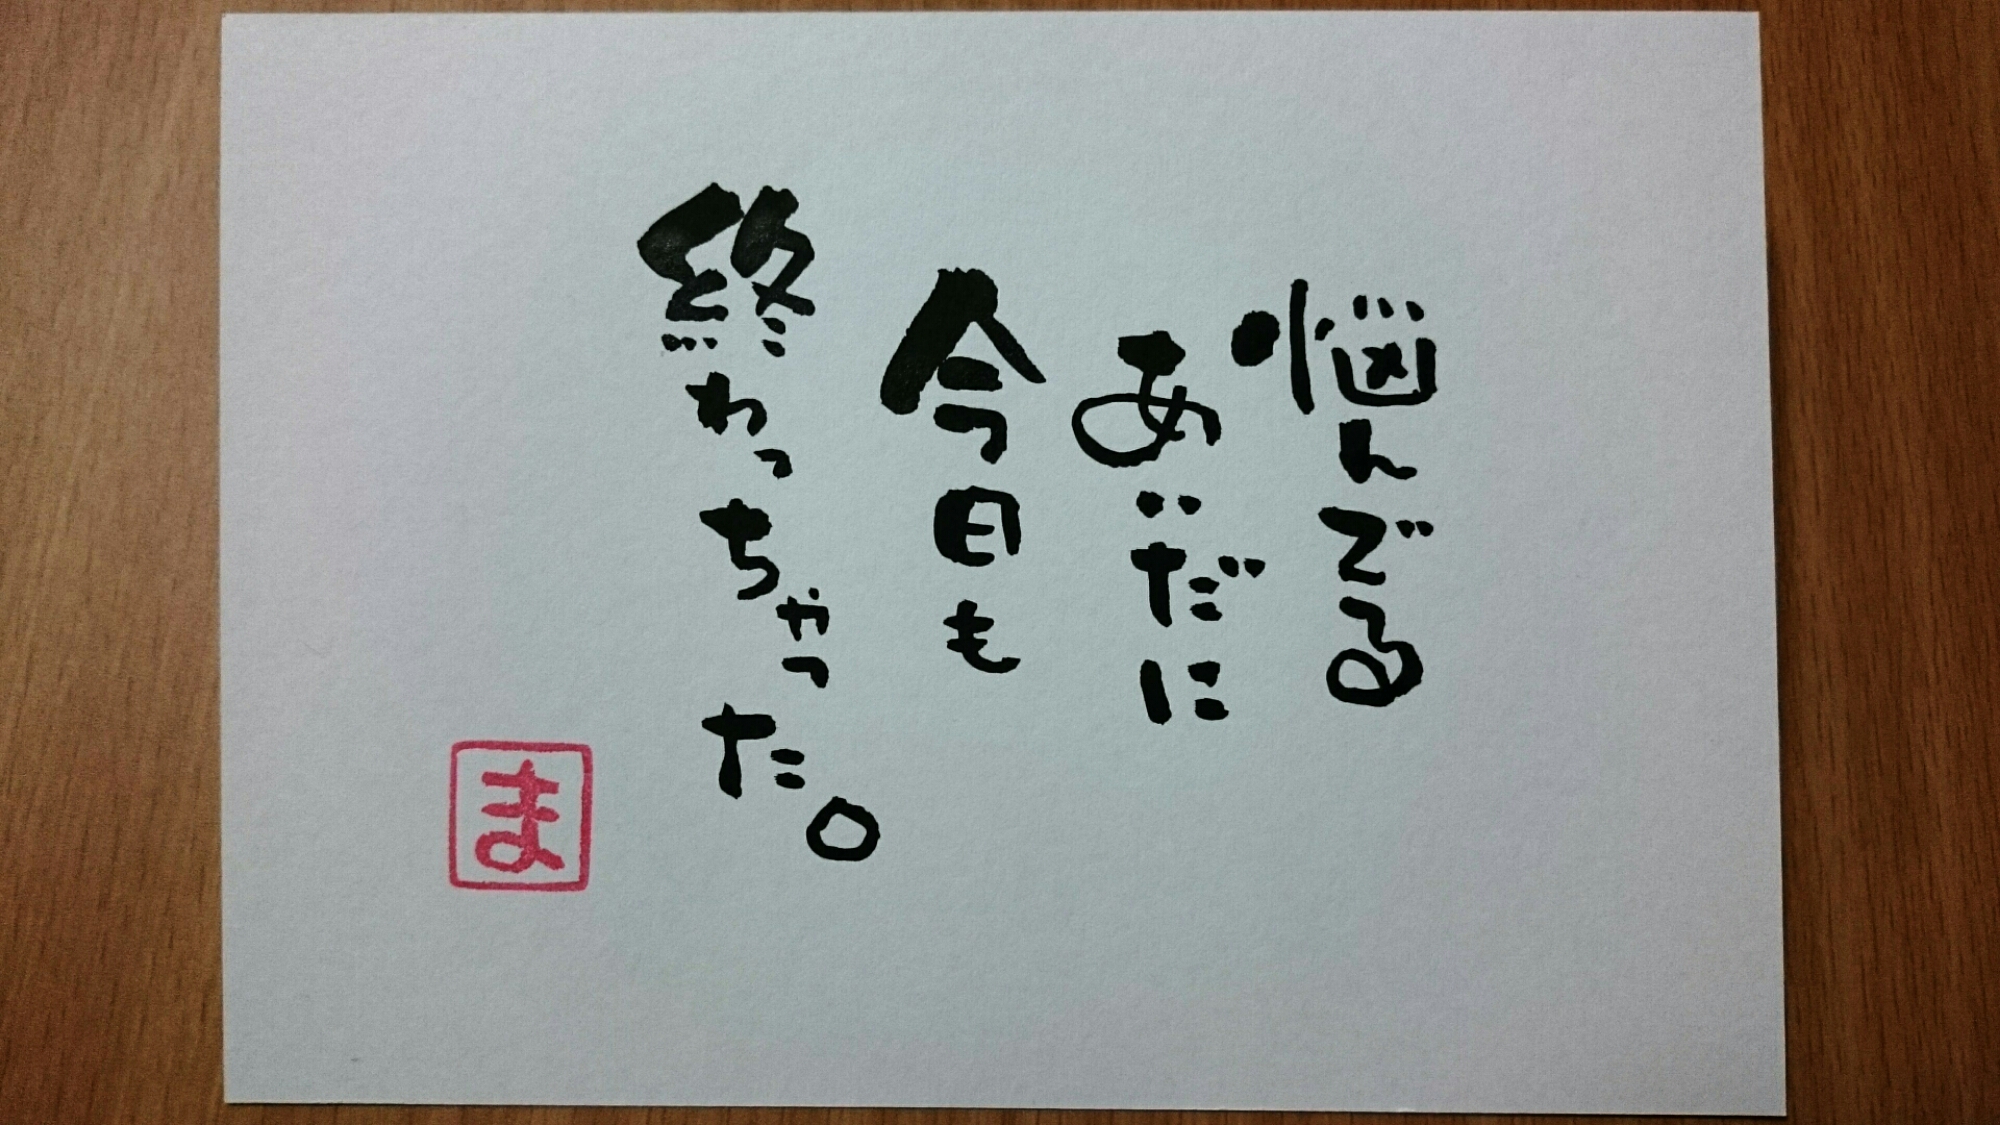 悩んでる
あいだに
今日も
終わっちゃった。
ま